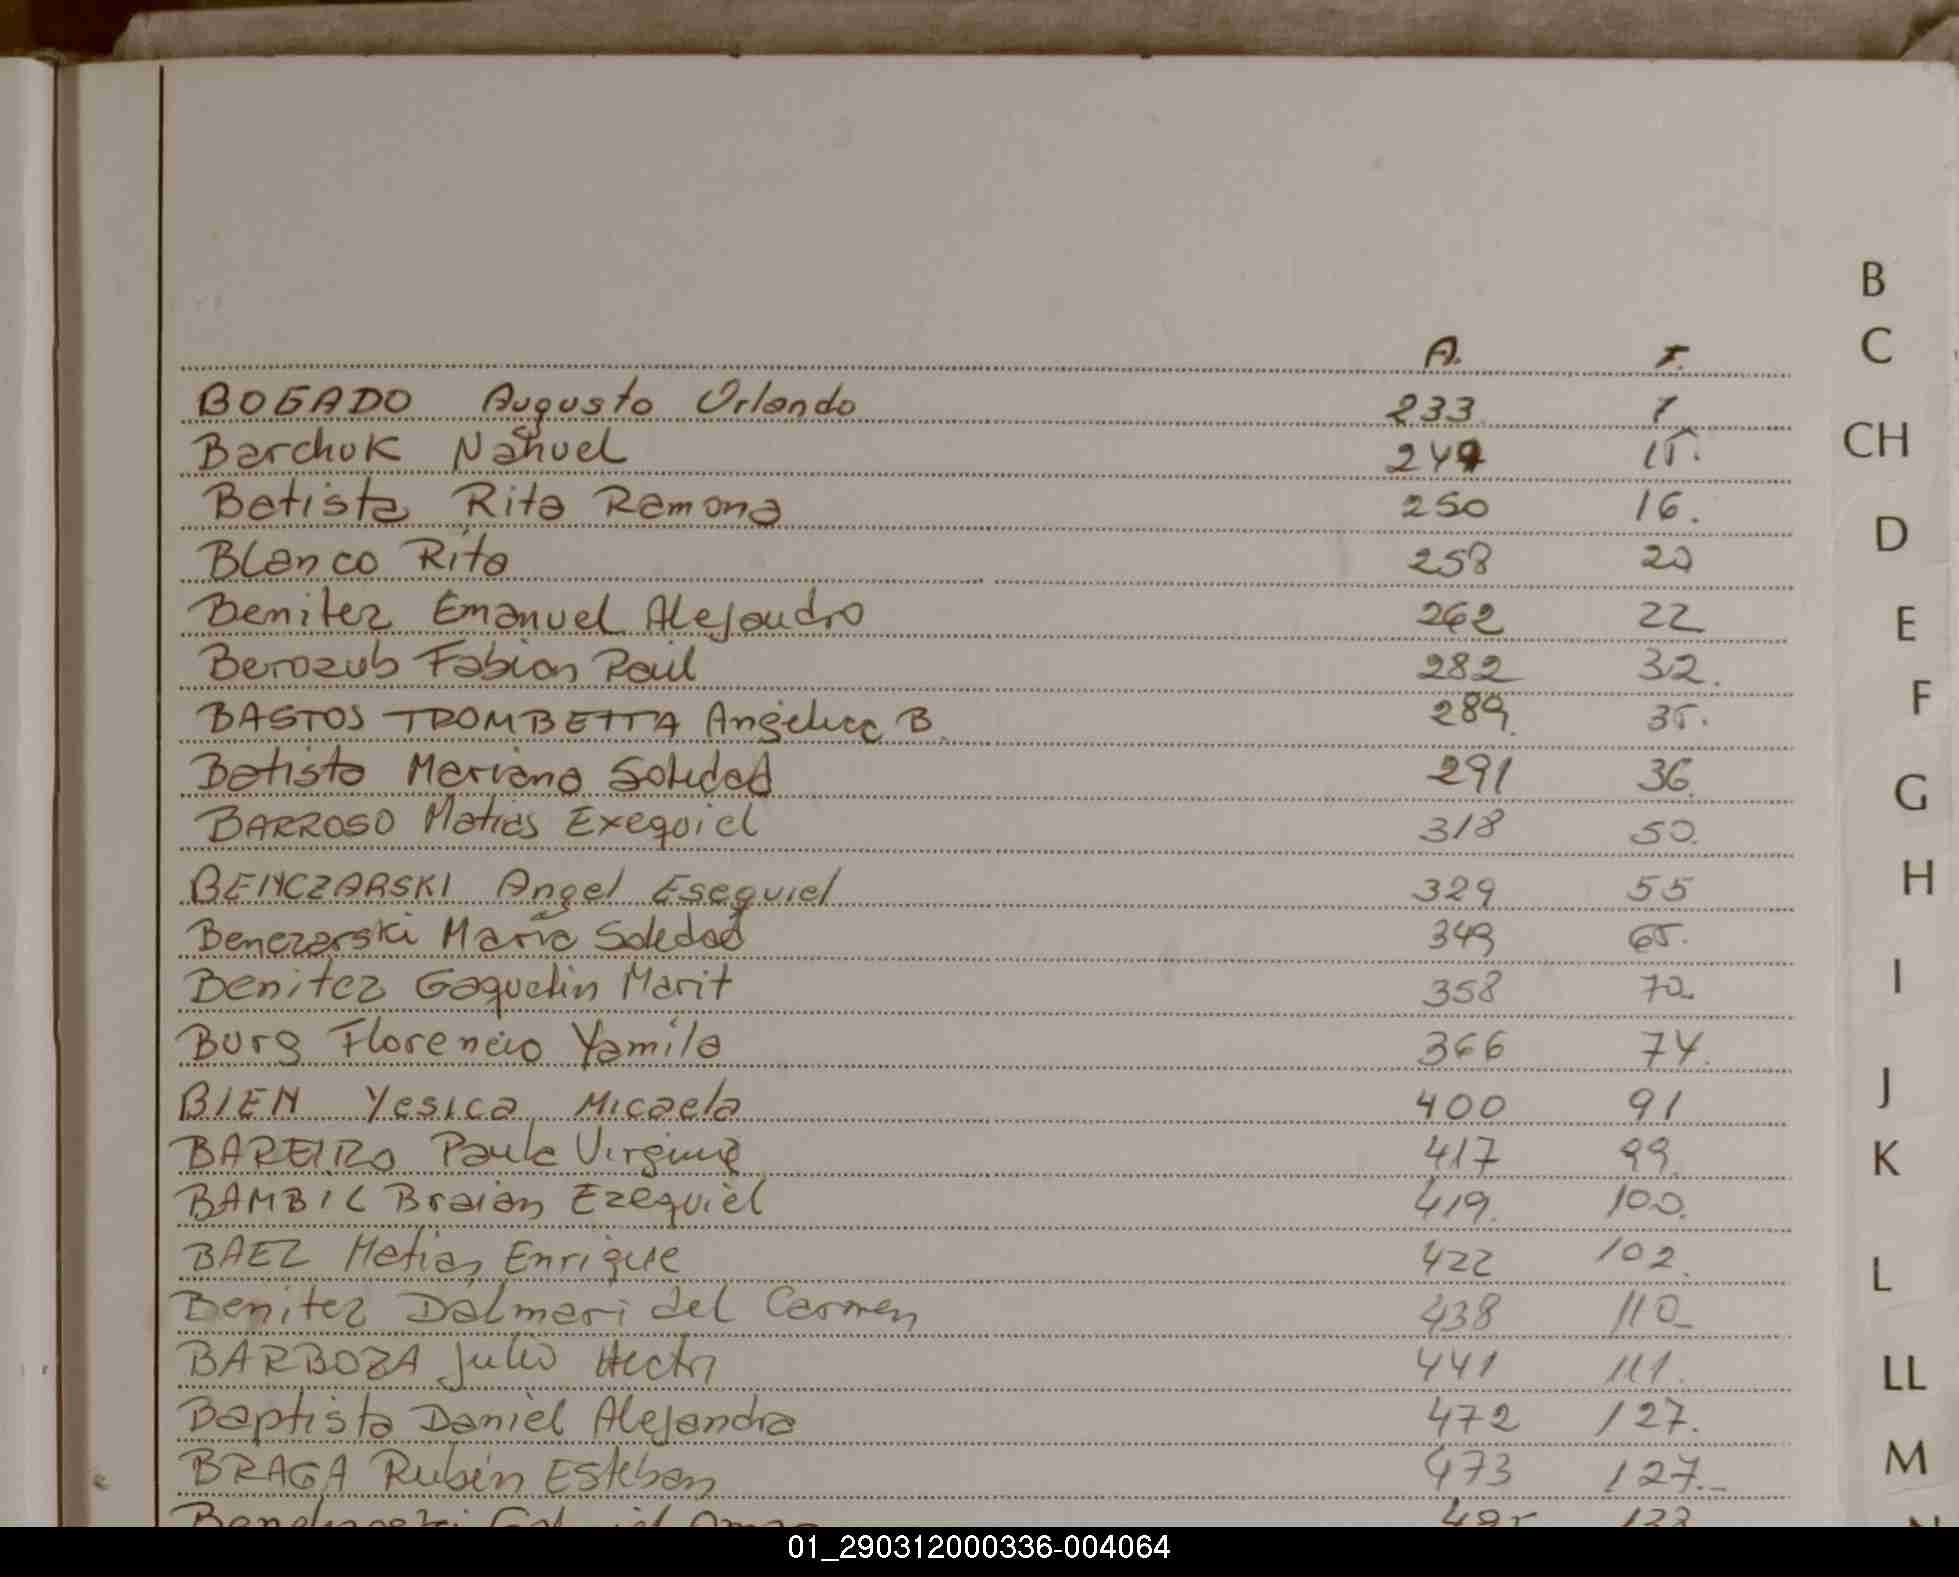 A. F.
BOGADO Augusto Orlando 233 7
Barchuk Nahuel 249 15.
Batista Rita Ramona 250 16.
Blanco Rita 258 20
Benitez Emanuel Alejandro 262 22
Berozub Fabian Raúl 282 32.
BASTOS TROMBETTA Angélica B. 289. 35.
Batista Mariana Soledad 291 36.
BARROSO Matias Exequiel 318 50.
BENCZARSKI Angel Esequiel 329 55
Benczarski María Soledad 349 65.
Benitez Gaquelin Marit 358 70.
Burg Florencio Yamila 366 74.
BIEN Yesica Micaela 400 91
BAREIRO Paula Virginia 417 99.
BAMBIL Braian Ezequiel 419. 100.
BAEZ Matias Enrique 422 102.
Benitez Dalmari del Carmen 438 110
BARBOZA Julio Hector 441 111.
Baptista Daniel Alejandra 472 127.
BRAGA Rubén Esteban 473 127.-
B
C
CH
D
E
F
G
H
I
J
K
L
LL
M
01_290312000336-004064